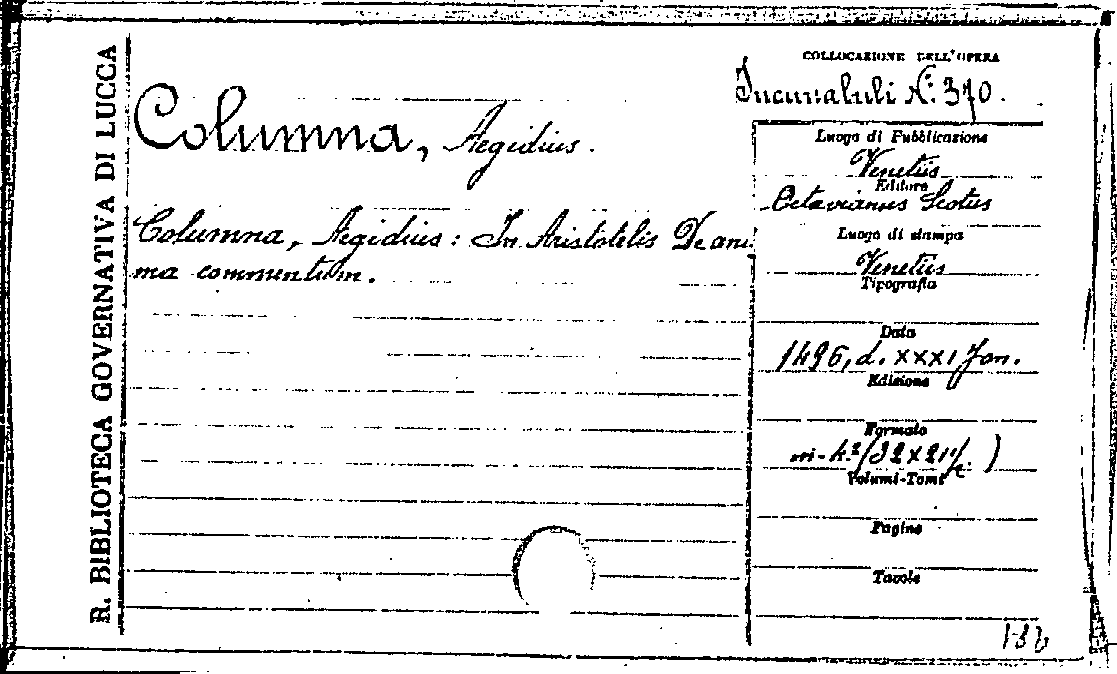 R. BIBLIOTECA GOVERNATIVA DI LUCCA
COLLOCAZIONE DELL'OPERA
Incunabuli N.° 370.
Columna, Aegidius.
Columna, Aegidius: In Aristotelis De ani
ma commentum.
Luogo di Pubblicazione
Venetiis
Editore
Octavianus Scotus
Luogo di stampa
Venetiis
Tipografia
Data
1496, d. XXXI Jan.
Edizione
Formato
in-4° (32 x 21
Volumi-Tomi
Pagine
Tavole